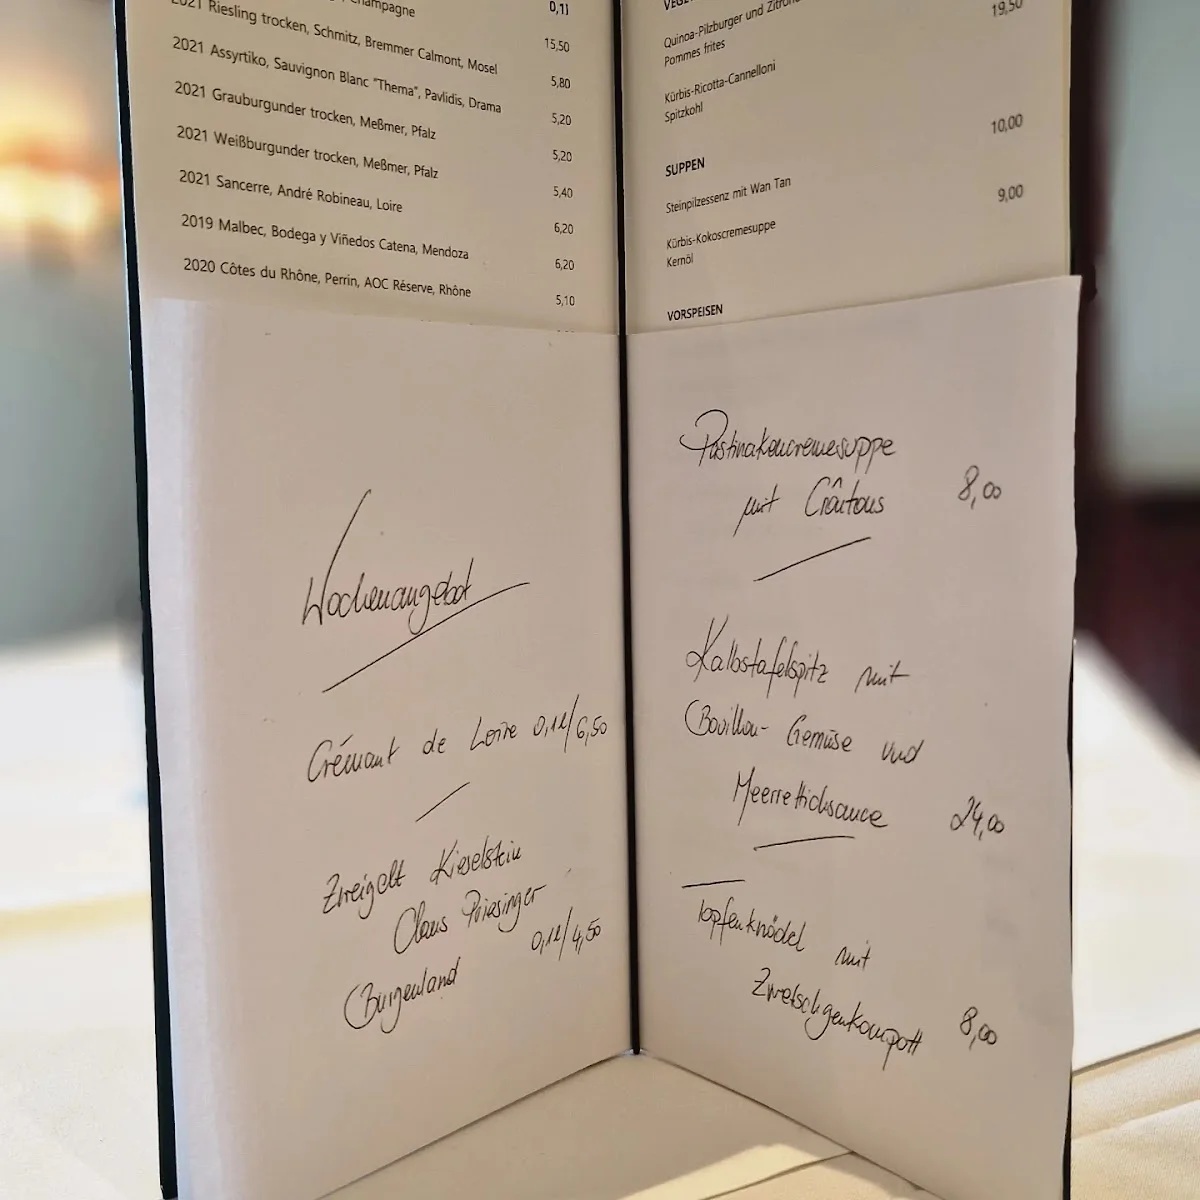 Champagne
0,1l
2021 Riesling trocken, Schmitz, Bremmer Calmont, Mosel
15,50
2021 Assyrtiko, Sauvignon Blanc "Thema", Pavlidis, Drama
5,80
2021 Grauburgunder trocken, Meßmer, Pfalz
5,20
2021 Weißburgunder trocken, Meßmer, Pfalz
5,20
2021 Sancerre, André Robineau, Loire
5,40
2019 Malbec, Bodega y Viñedos Catena, Mendoza
6,20
2020 Côtes du Rhône, Perrin, AOC Réserve, Rhône
6,20
5,10
Wochenangebot
Crémant de Loire 0,1l/6,50
Zweigelt Kieselstein
Claus Priesinger
0,1l/4,50
Burgenland
Quinoa-Pilzburger und
19,50
Pommes frites
Kürbis-Ricotta-Cannelloni
Spitzkohl
10,00
SUPPEN
Steinpilzessenz mit Wan Tan
9,00
Kürbis-Kokoscremesuppe
Kernöl
VORSPEISEN
Pastinakencremesuppe
mit Croûtons 8,00
Kalbstafelspitz mit
Bouillon-Gemüse und
Meerrettichsauce 24,00
Topfenknödel mit
Zwetschgenkompott 8,00